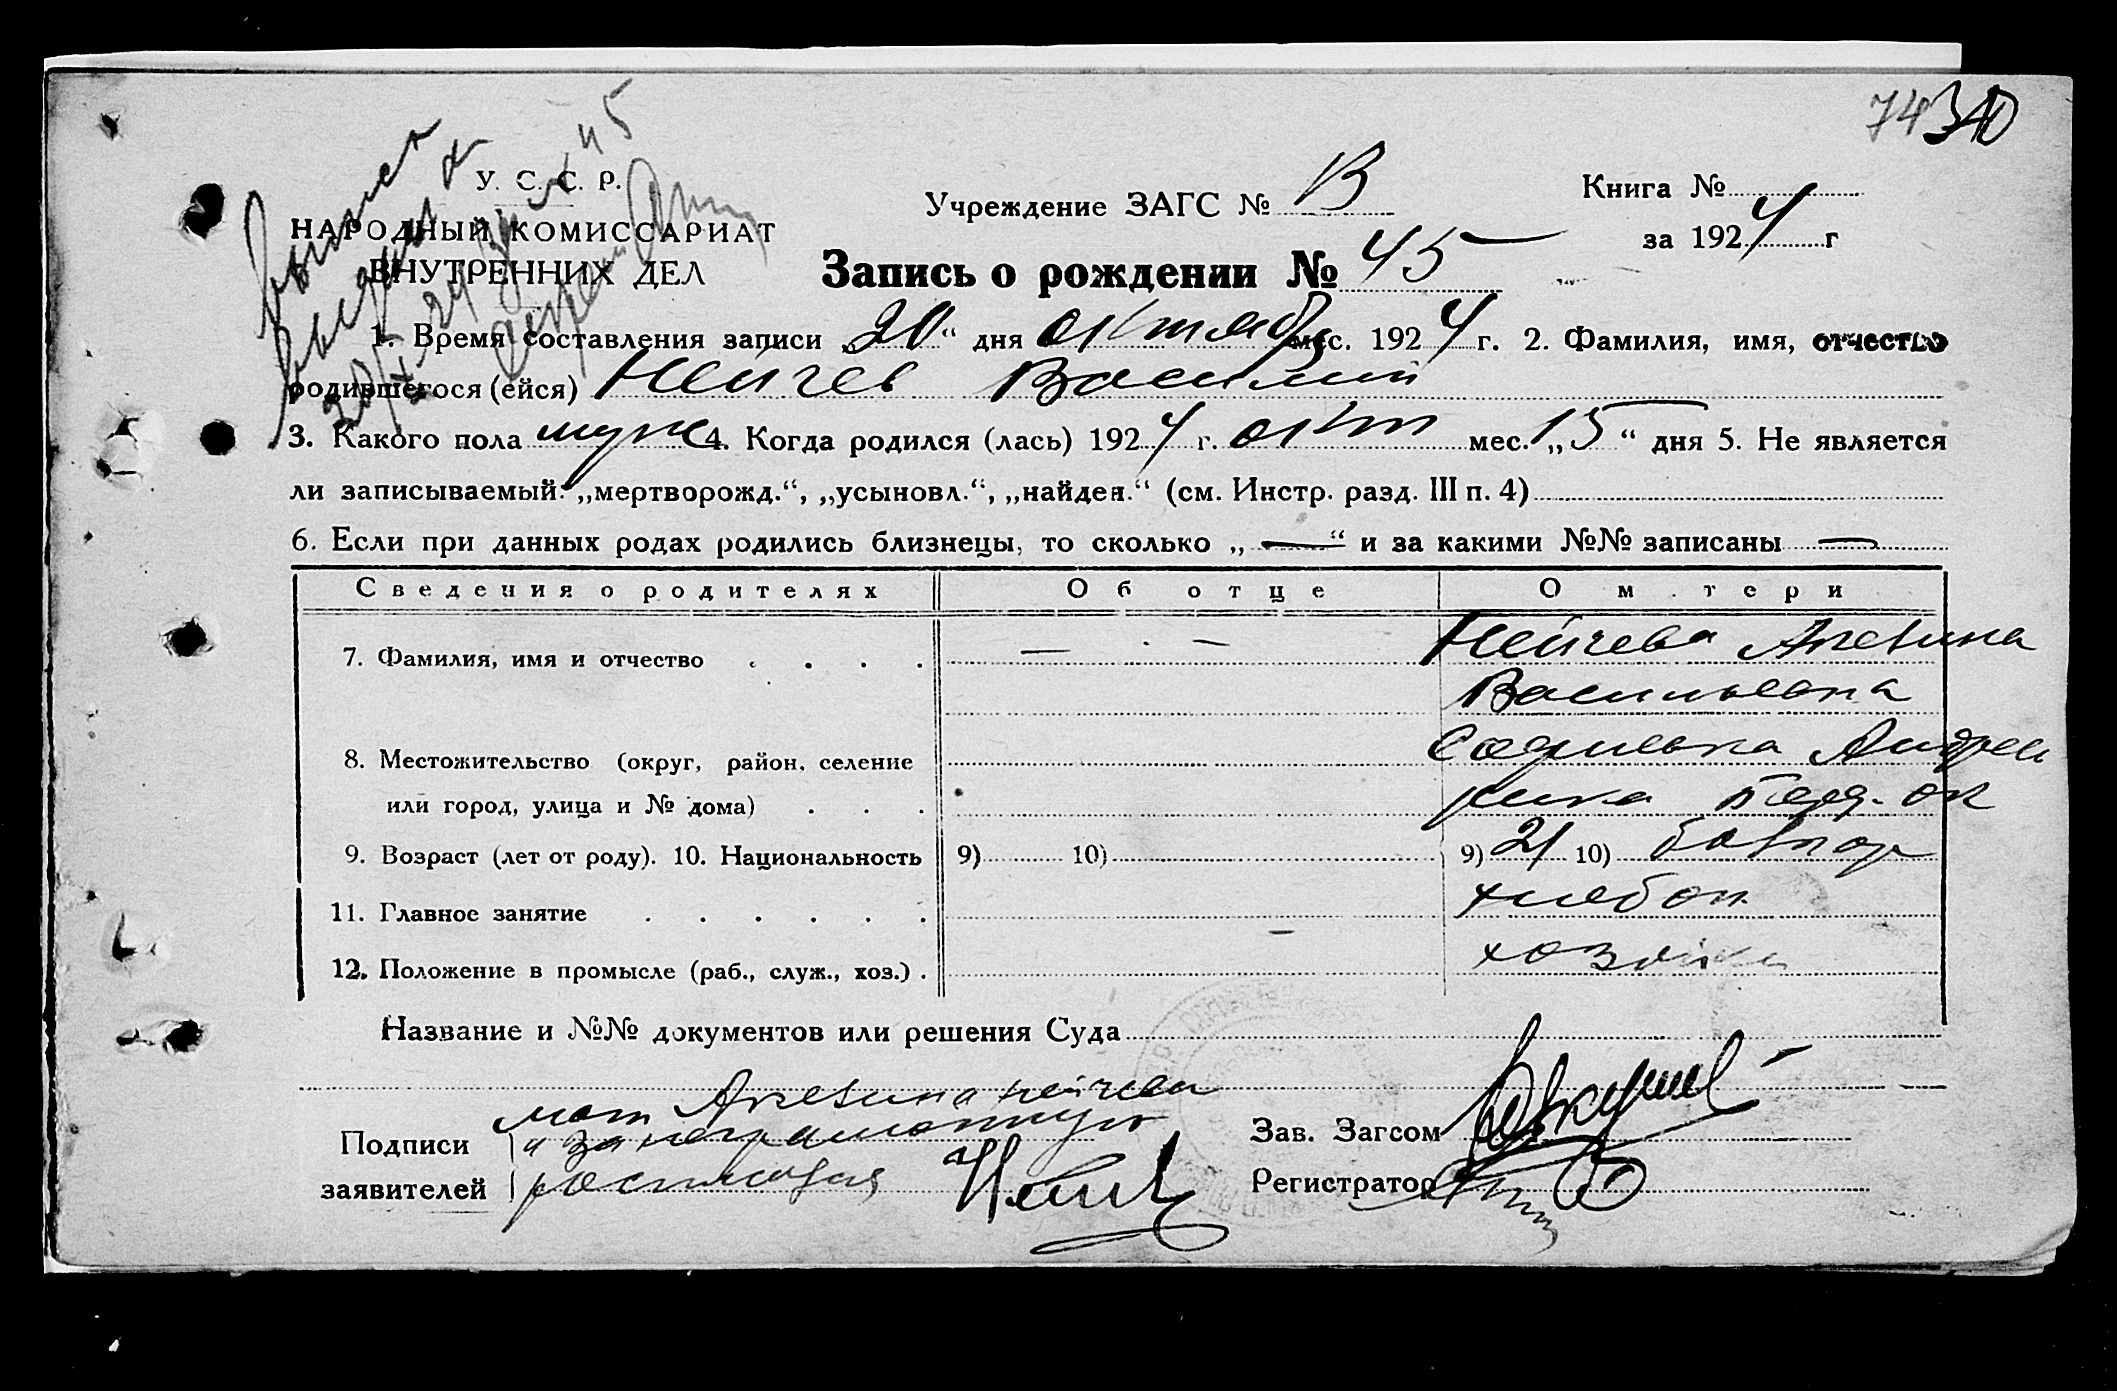 74 340
У. С. С. Р.
НАРОДНЫЙ КОМИССАРИАТ
ВНУТРЕННИХ ДЕЛ
Учреждение ЗАГС № В
Книга №
за 1924 г
Запись о рождении № 45
1. Время составления записи „20“ дня октяб мес. 1924 г. 2. Фамилия, имя, отчество
родившегося (ейся) Нейчев Василий
3. Какого пола муж 4. Когда родился (лась) 1924 г. окт мес. „15“ дня 5. Не является
ли записываемый: „мертворожд.“, „усыновл.“, „найден.“ (см. Инстр. разд. III п. 4)
6. Если при данных родах родились близнецы, то сколько „—“ и за какими №№ записаны —
Сведения о родителях Об отце О м тери
7. Фамилия, имя и отчество — — Нейчева
Васильевна
8. Местожительство (округ, район, селение Андрев
или город, улица и № дома) Берд. ок
9. Возраст (лет от роду). 10. Национальность 9) 10) 9) 21 10) болгар
11. Главное занятие хлебоп
12. Положение в промысле (раб., служ., хоз.) — хозяйка
Название и №№ документов или решения Суда
мат Нейчева
Подписи а за неграмотную
заявителей
Зав. Загсом
Регистратор